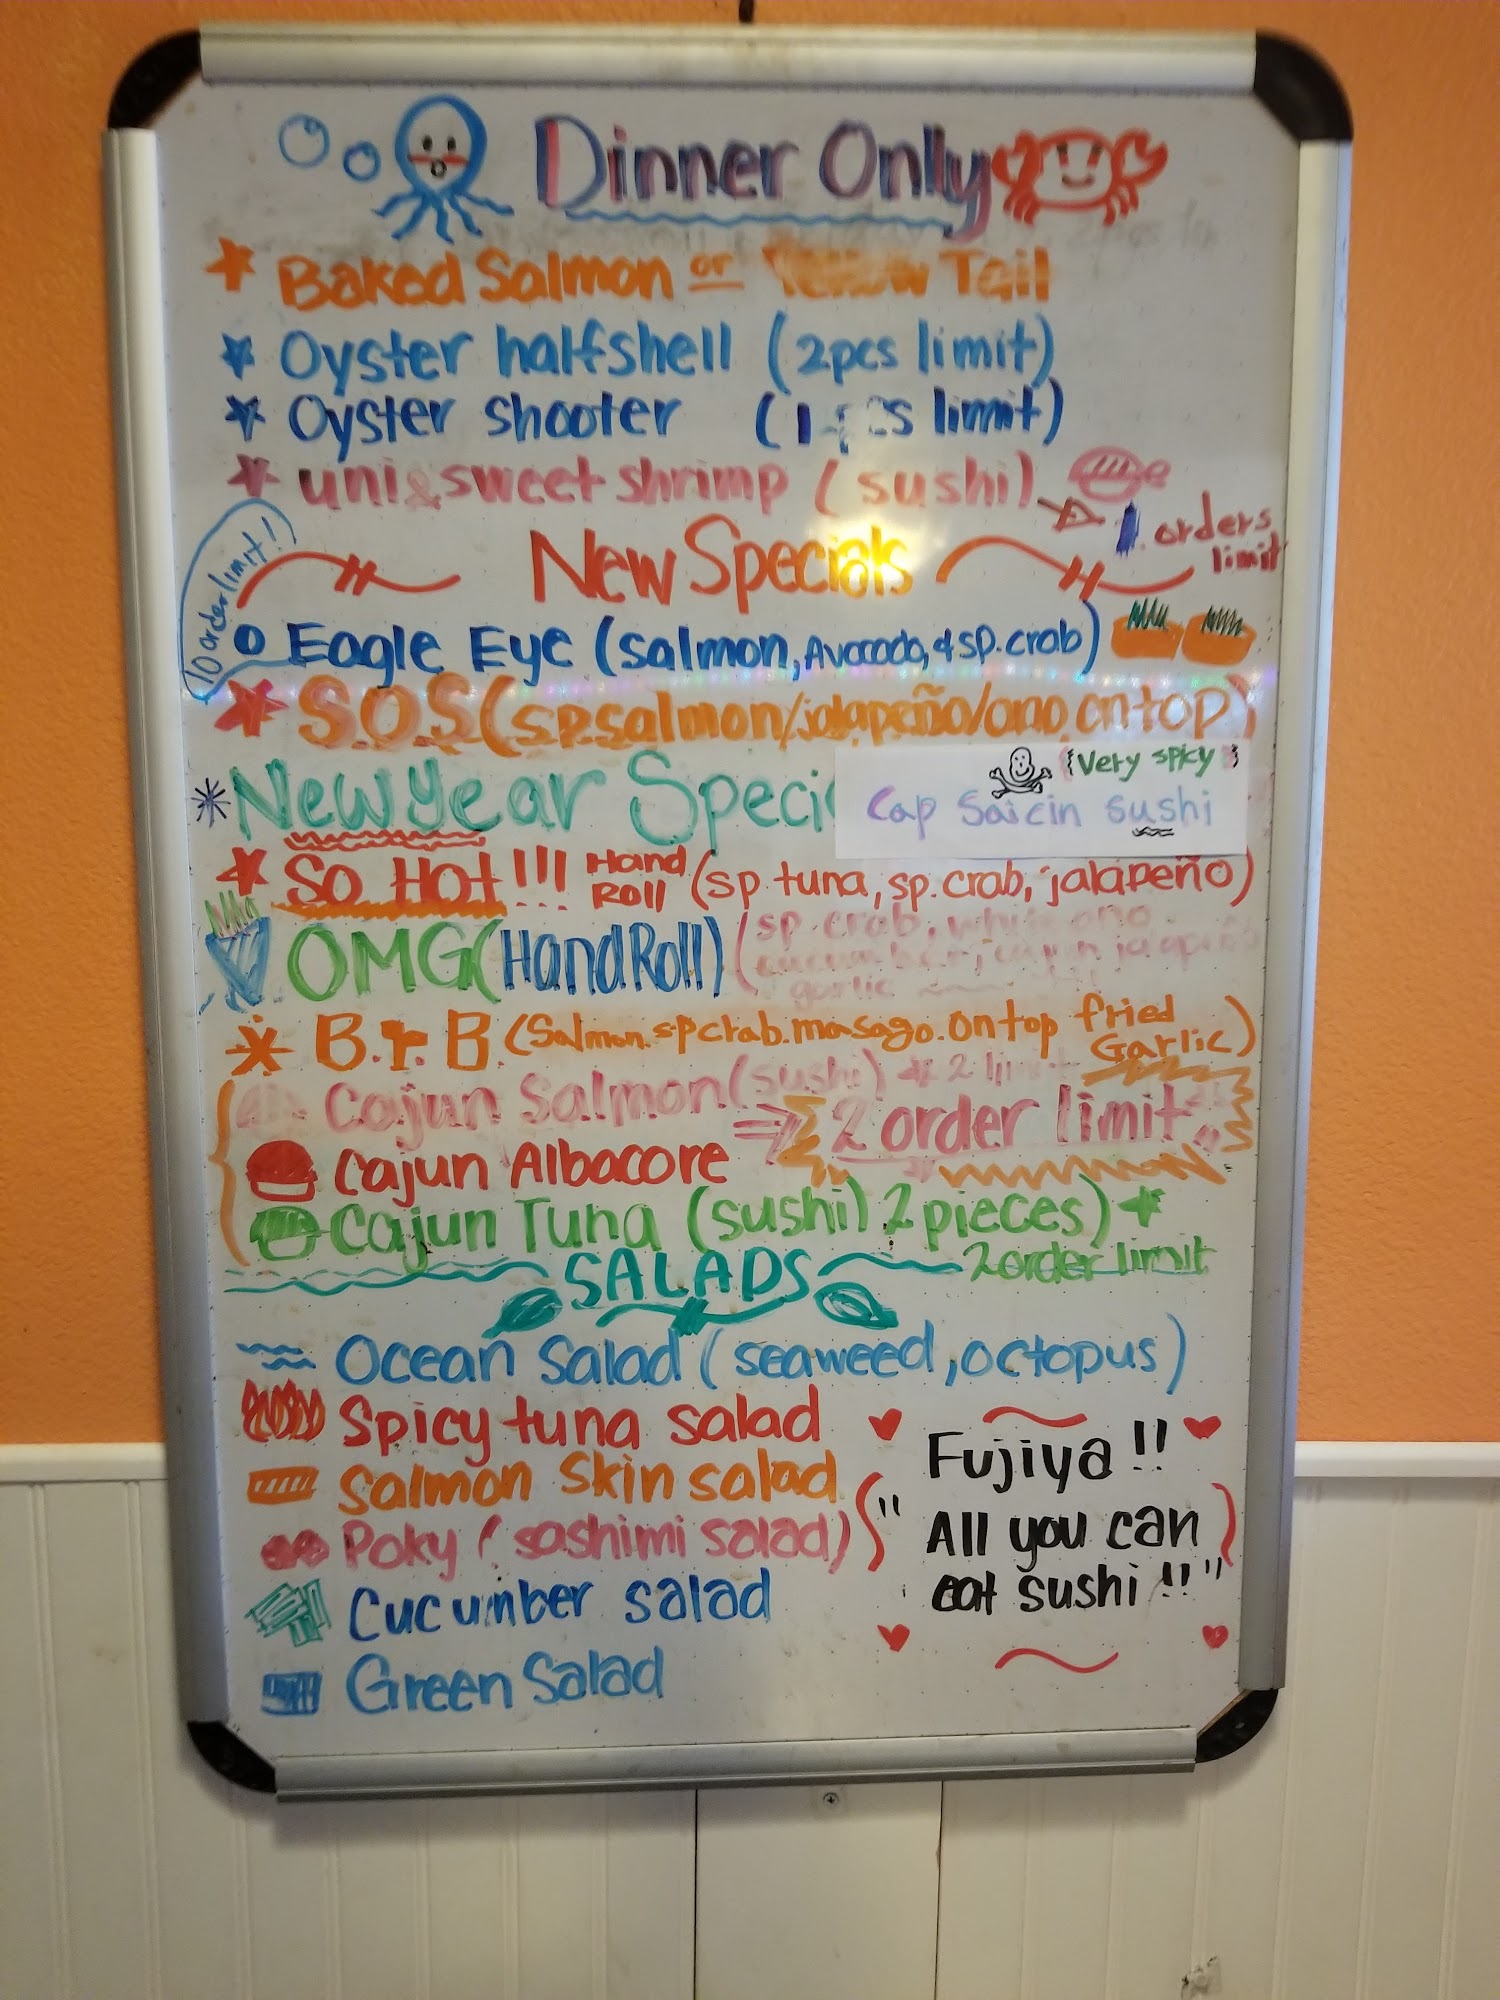 Dinner Only
Baked Salmon or Yellow Tail
Oyster halfshell (2pcs limit)
Oyster shooter (1 pcs limit)
uni & sweet shrimp (sushi)
1 orders
limit
New Specials
10 order limit!
Eagle Eye (salmon, Avocado, & sp. crab)
S.O.S (sp.salmon/jalapeño/ono on top)
{Very spicy}
New year Speci
Cap Saicin sushi
So Hot!!! Hand Roll (sp tuna, sp. crab, jalapeño)
OMG (Hand Roll) (sp. crab, white ono
cucumber, cajun jalapeño
garlic
B.r.B (Salmon.spcrab.masago.on top fried Garlic)
Cajun Salmon (sushi) 2 limit
2 order limit
Cajun Albacore
Cajun Tuna (sushi) 2 pieces)
2 order limit
SALADS
Ocean Salad (seaweed, octopus)
Spicy tuna salad
Salmon Skin salad
Poky (sashimi salad)
Cucumber salad
Green Salad
Fujiya!!
"All you can
eat sushi!!"